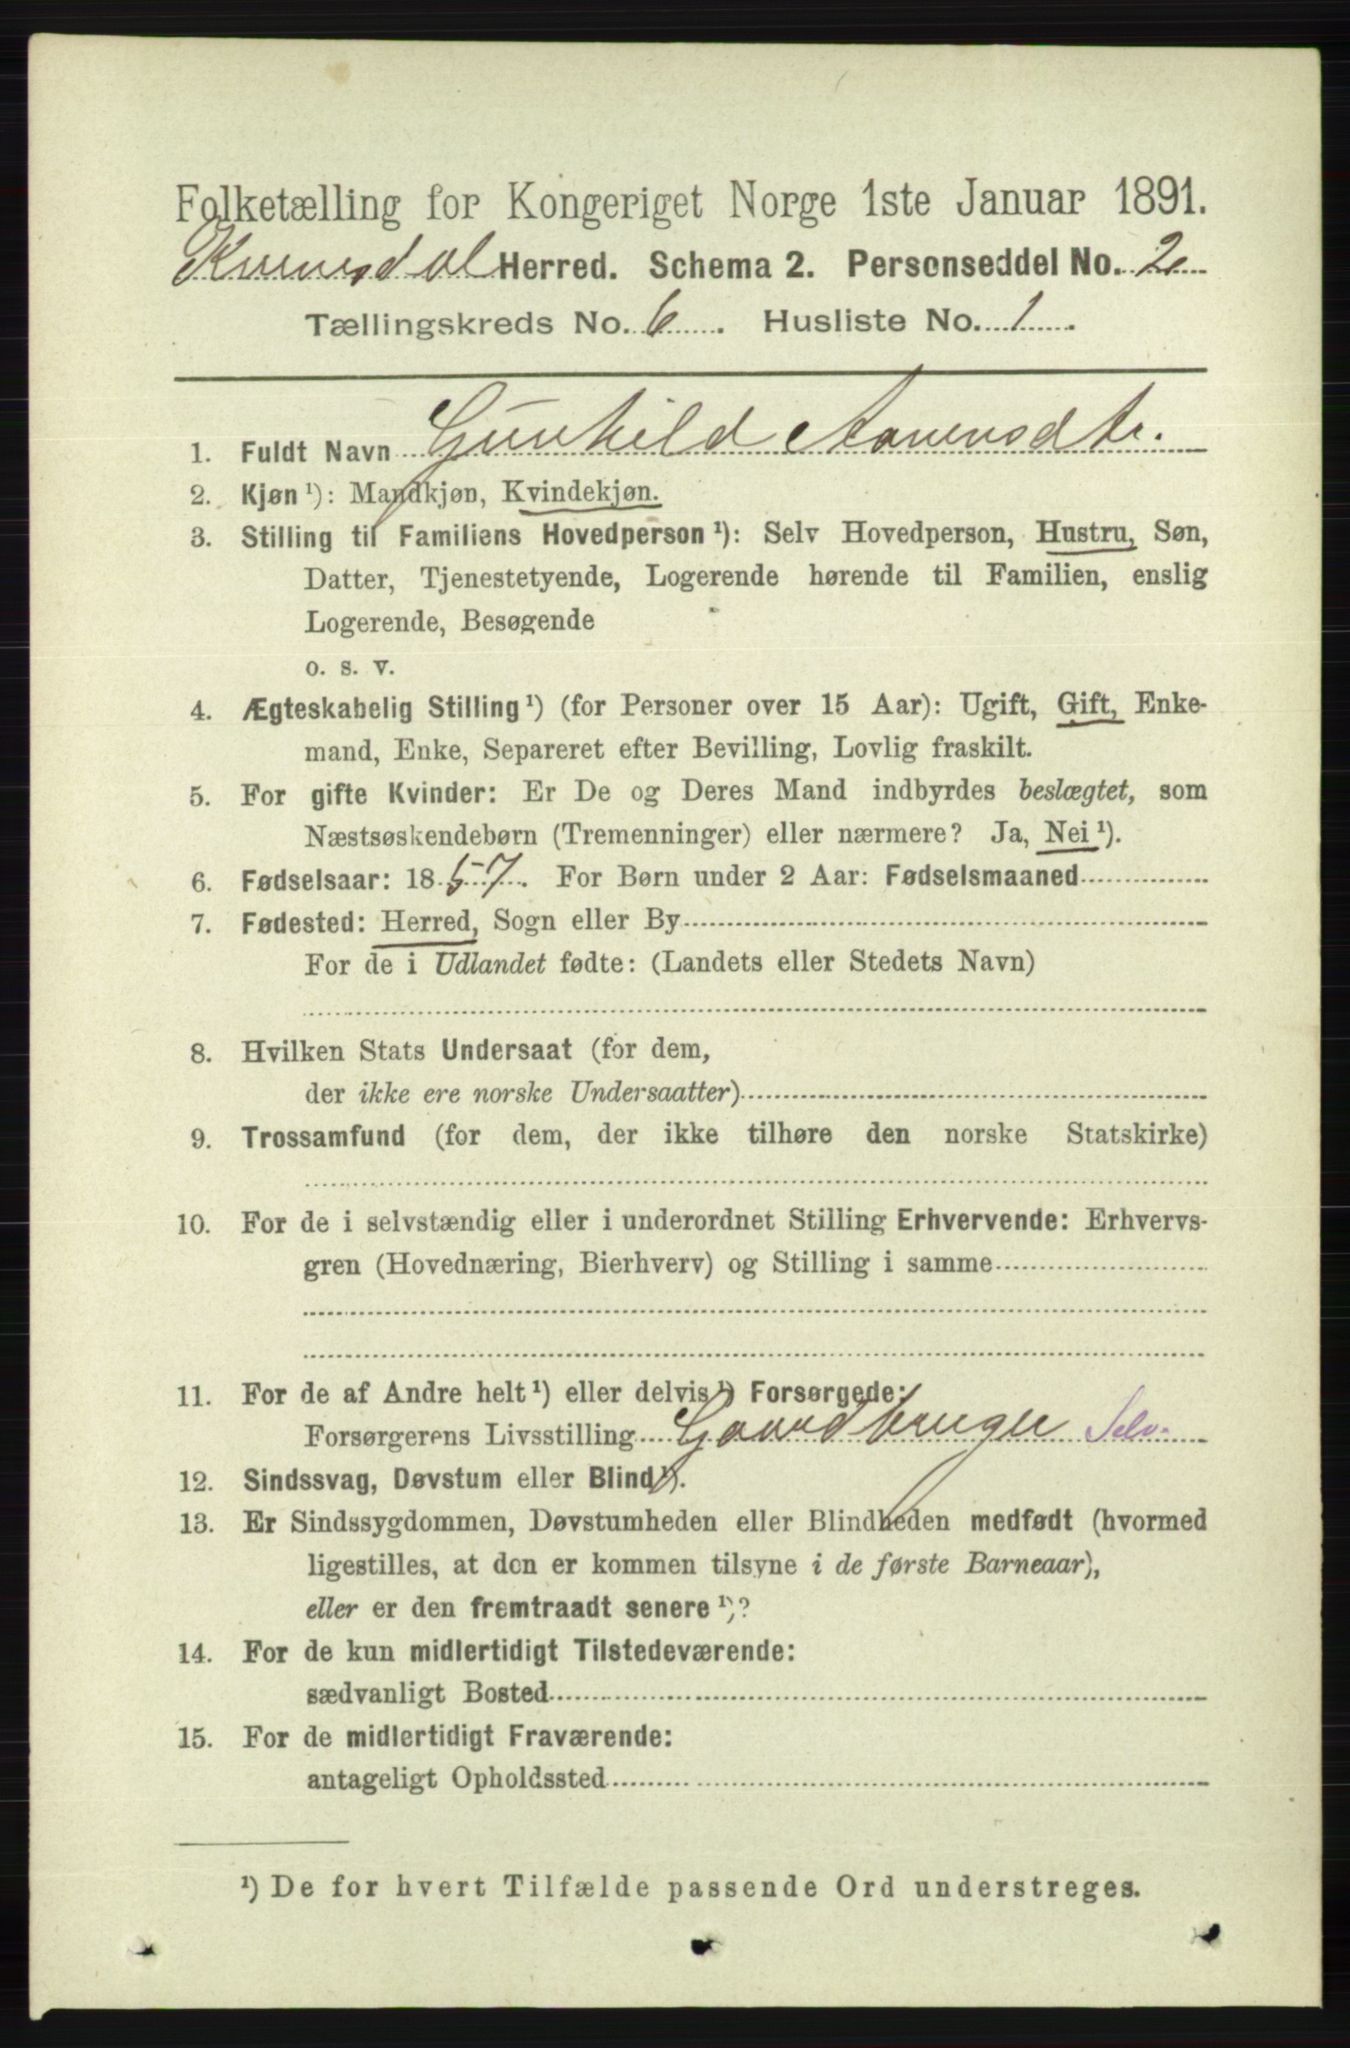 Folketælling for Kongeriget Norge 1ste Januar 1891.
Kvinesdal Herred. Schema 2. Personseddel No. 2
Tællingskreds No. 6. Husliste No. 1.
1. Fuldt Navn Gunhild Aanensdtr.
2. Kjøn ¹): Mandkjøn, Kvindekjøn.
3. Stilling til Familiens Hovedperson ¹): Selv Hovedperson, Hustru, Søn,
Datter, Tjenestetyende, Logerende hørende til Familien, enslig
Logerende, Besøgende
o. s. v.
4. Ægteskabelig Stilling ¹) (for Personer over 15 Aar): Ugift, Gift, Enke-
mand, Enke, Separeret efter Bevilling, Lovlig fraskilt.
5. For gifte Kvinder: Er De og Deres Mand indbyrdes beslægtet, som
Næstsøskendebørn (Tremenninger) eller nærmere? Ja, Nei ¹).
6. Fødselsaar: 1857. For Børn under 2 Aar: Fødselsmaaned
7. Fødested: Herred, Sogn eller By
For de i Udlandet fødte: (Landets eller Stedets Navn)
8. Hvilken Stats Undersaat (for dem,
der ikke ere norske Undersaatter)
9. Trossamfund (for dem, der ikke tilhøre den norske Statskirke)
10. For de i selvstændig eller i underordnet Stilling Erhvervende: Erhvervs-
gren (Hovednæring, Bierhverv) og Stilling i samme
11. For de af Andre helt ¹) eller delvis ¹) Forsørgede:
Forsørgerens Livsstilling Gaardbruger Selv.
12. Sindssvag, Døvstum eller Blind ¹).
13. Er Sindssygdommen, Døvstumheden eller Blindheden medfødt (hvormed
ligestilles, at den er kommen tilsyne i de første Barneaar),
eller er den fremtraadt senere ¹)?
14. For de kun midlertidigt Tilstedeværende:
sædvanligt Bosted
15. For de midlertidigt Fraværende:
antageligt Opholdssted
¹) De for hvert Tilfælde passende Ord understreges.